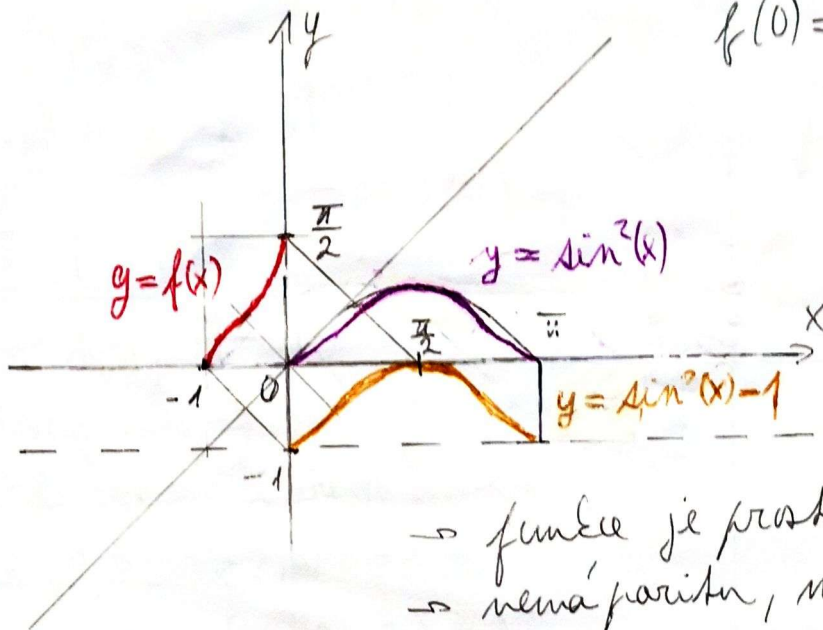 y
f(0)=
π/2
y=f(x)
y=sin²(x)
π/2
π
x
-1
0
y=sin²(x)-1
-1
→ funkce je prost
→ nemá paritu, n